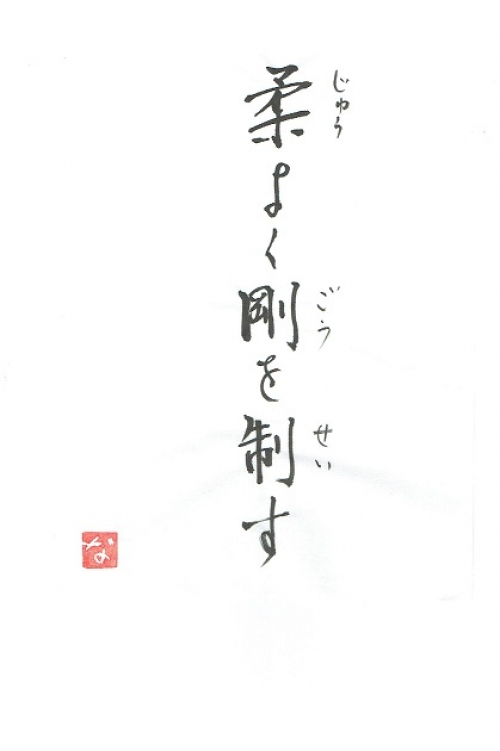 柔よく剛を制す
じゅう
ごう
せい
な